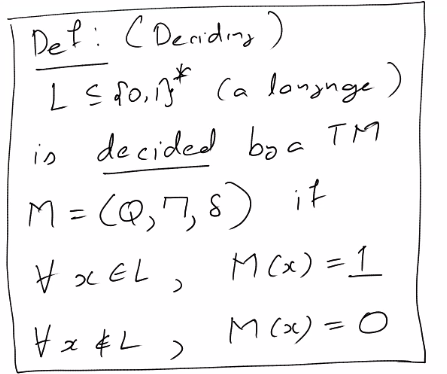 Def: (Deciding)
L ⊆ {0,1}* (a language)
is decided by a TM
M = (Q, Γ, δ) if
∀ x ∈ L, M(x) = 1
∀ x ∉ L, M(x) = 0